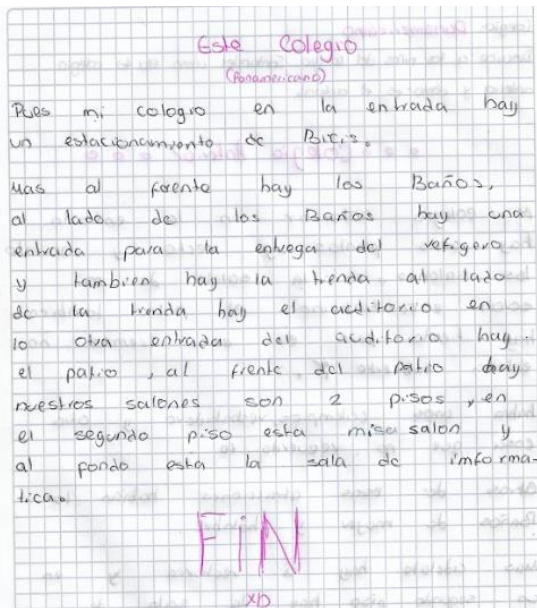 Este Colegio
(Panamericano)
Pues mi cologio en la entrada hay
un estacionamiento de Bicis.
Mas al frente hay los Baños,
al lado de los Baños hay una
entrada para la entrega del refigero
y tambien hay la tienda, al lado
de la tienda hay el auditorio en
lo otra entrada del auditorio hay
el patio, al frente del patio hay
nuestros salones son 2 pisos, en
el segundo piso esta salon y
al fondo esta la sala de imforma-
tica.
FiN
XD